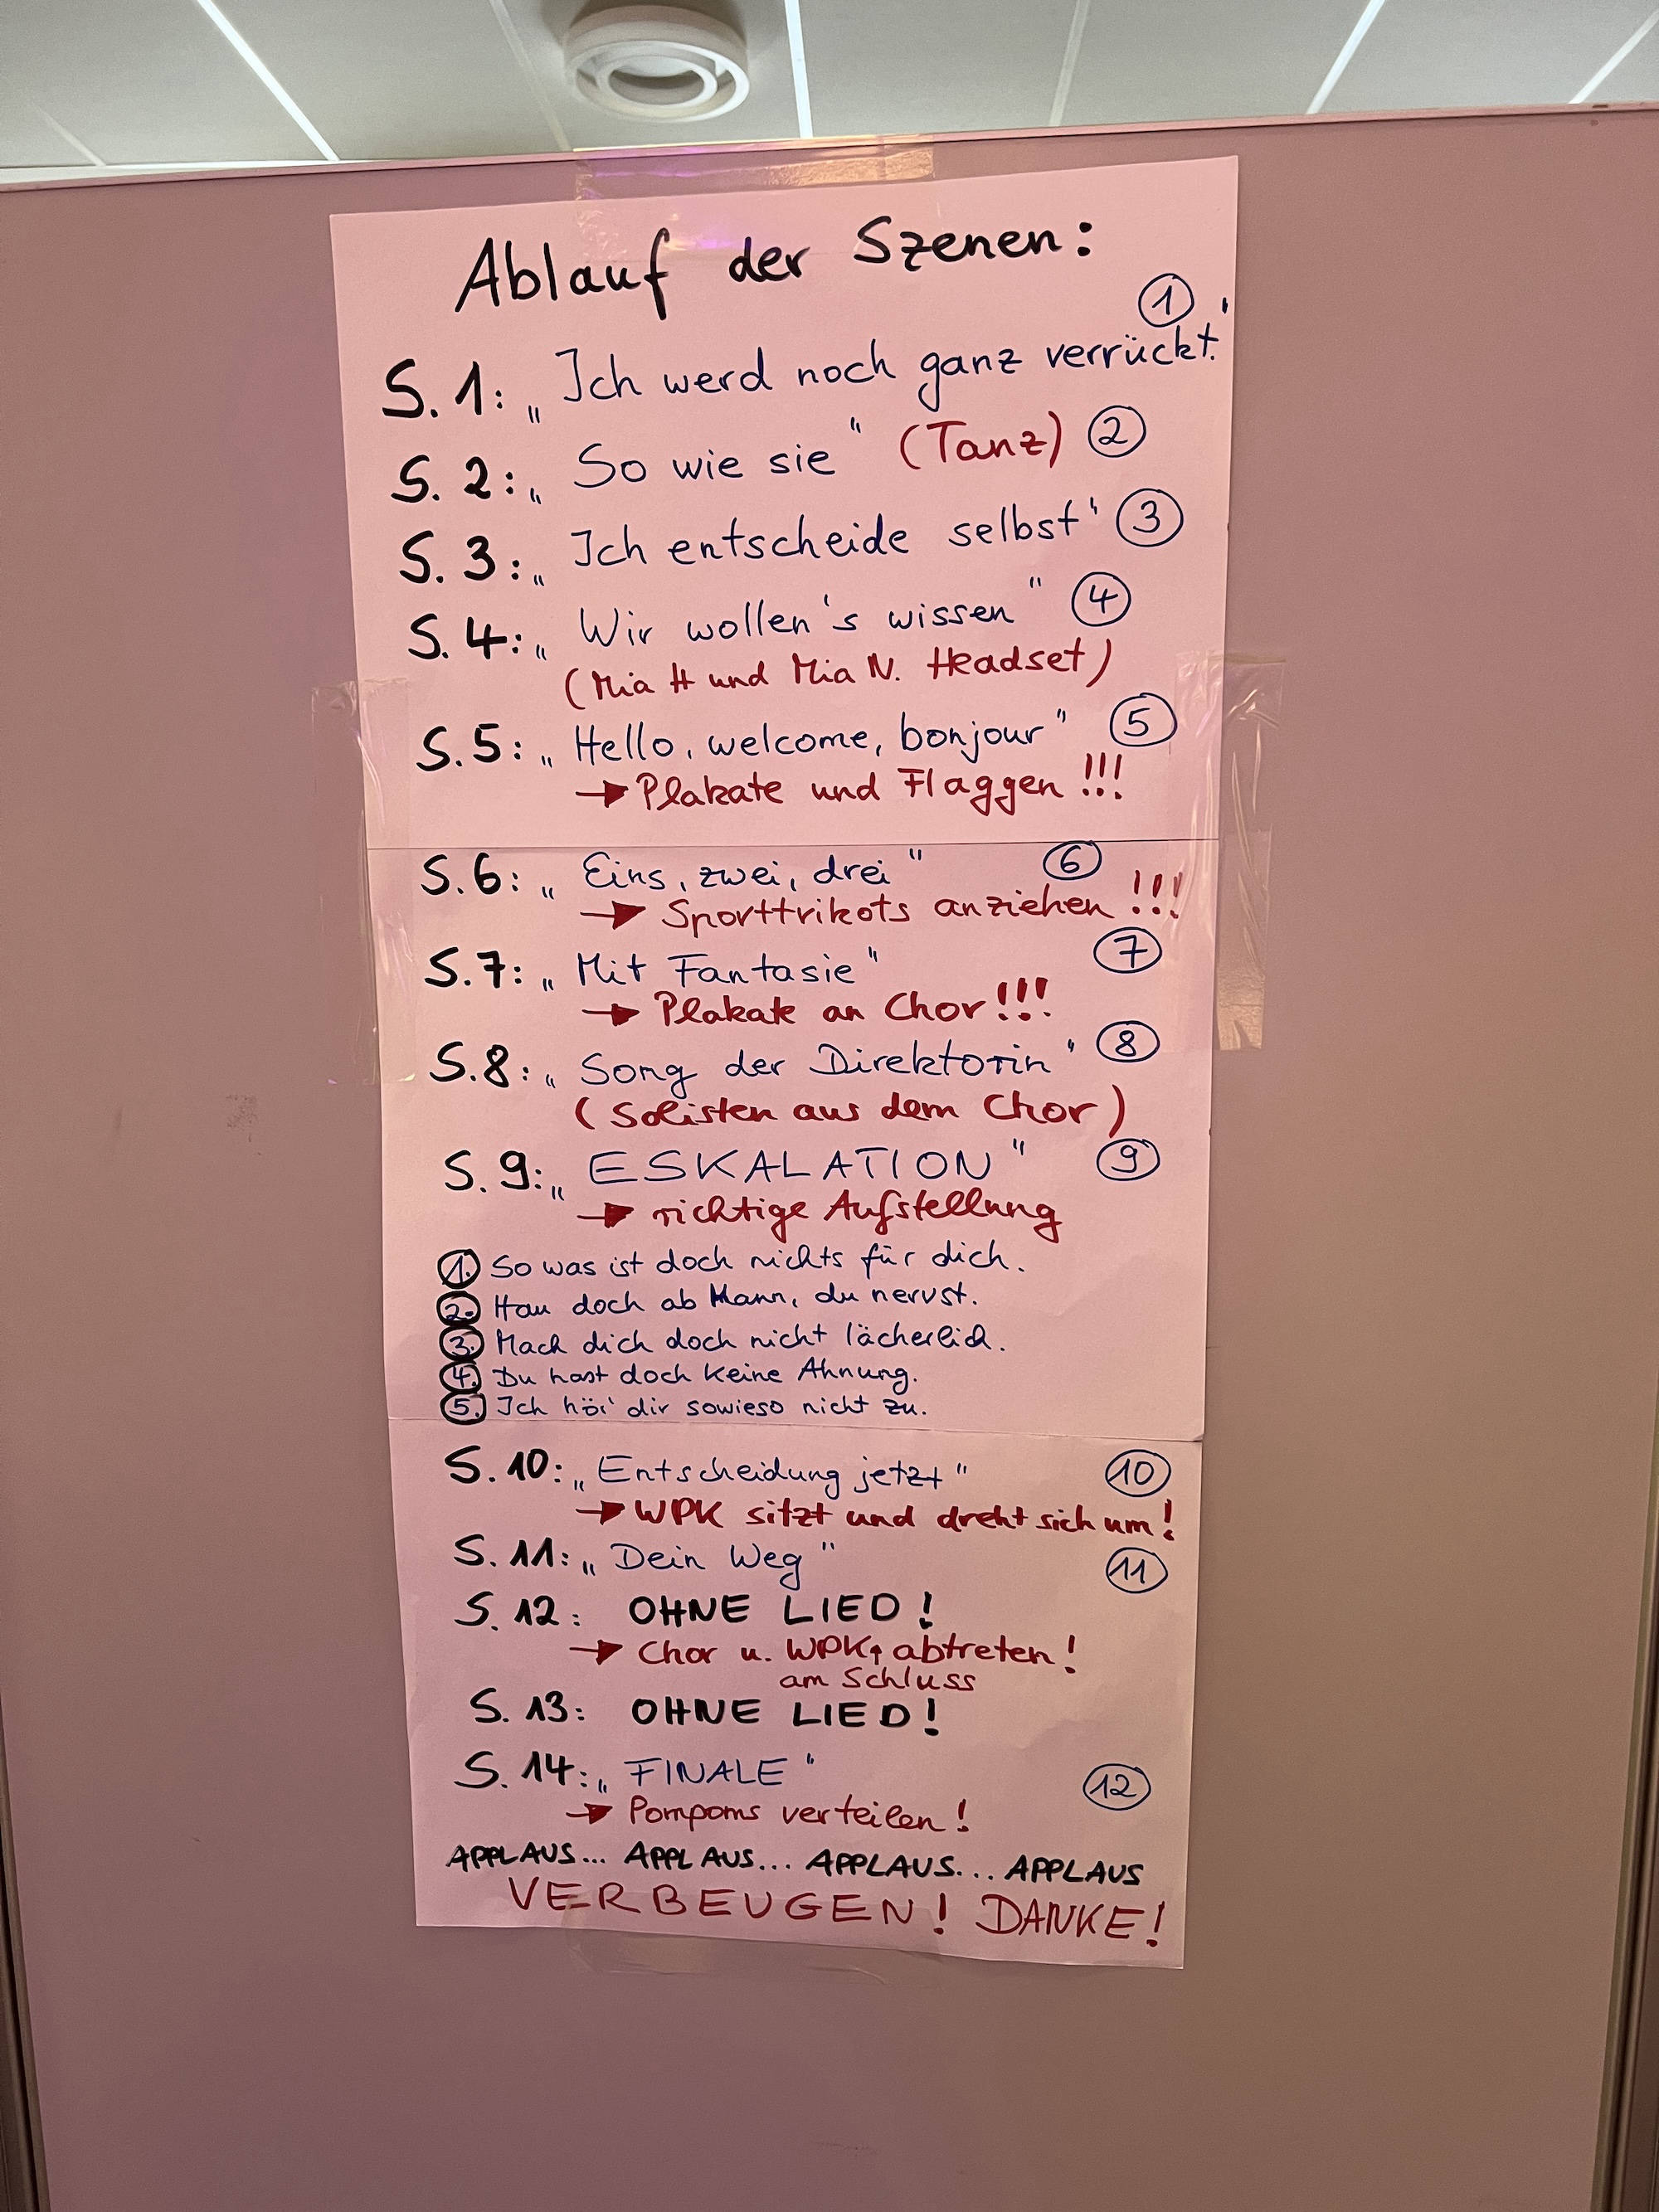 Ablauf der Szenen:
①
S. 1: „Ich werd noch ganz verrückt."
S. 2: „So wie sie" (Tanz) ②
S. 3: „Ich entscheide selbst" ③
S. 4: „Wir wollen's wissen" ④
(Mia H und Mia N. Headset)
S. 5: „Hello, welcome, bonjour" ⑤
→ Plakate und Flaggen !!!
S. 6: „Eins, zwei, drei" ⑥
→ Sporttrikots anziehen !!!
S. 7: „Mit Fantasie" ⑦
→ Plakate an Chor !!!
S. 8: „Song der Direktorin" ⑧
(Solisten aus dem Chor)
S. 9: „ESKALATION" ⑨
→ richtige Aufstellung
1. So was ist doch nichts für dich.
2. Hau doch ab Mann, du nervst.
3. Mach dich doch nicht lächerlich.
4. Du hast doch keine Ahnung.
5. Ich hör' dir sowieso nicht zu.
S. 10: „Entscheidung jetzt" ⑩
→ WPK sitzt und dreht sich um!
S. 11: „Dein Weg" ⑪
S. 12: OHNE LIED!
→ Chor u. WPK↑ abtreten!
am Schluss
S. 13: OHNE LIED!
S. 14: „FINALE" ⑫
→ Pompoms verteilen!
APPLAUS... APPLAUS... APPLAUS... APPLAUS
VERBEUGEN! DANKE!